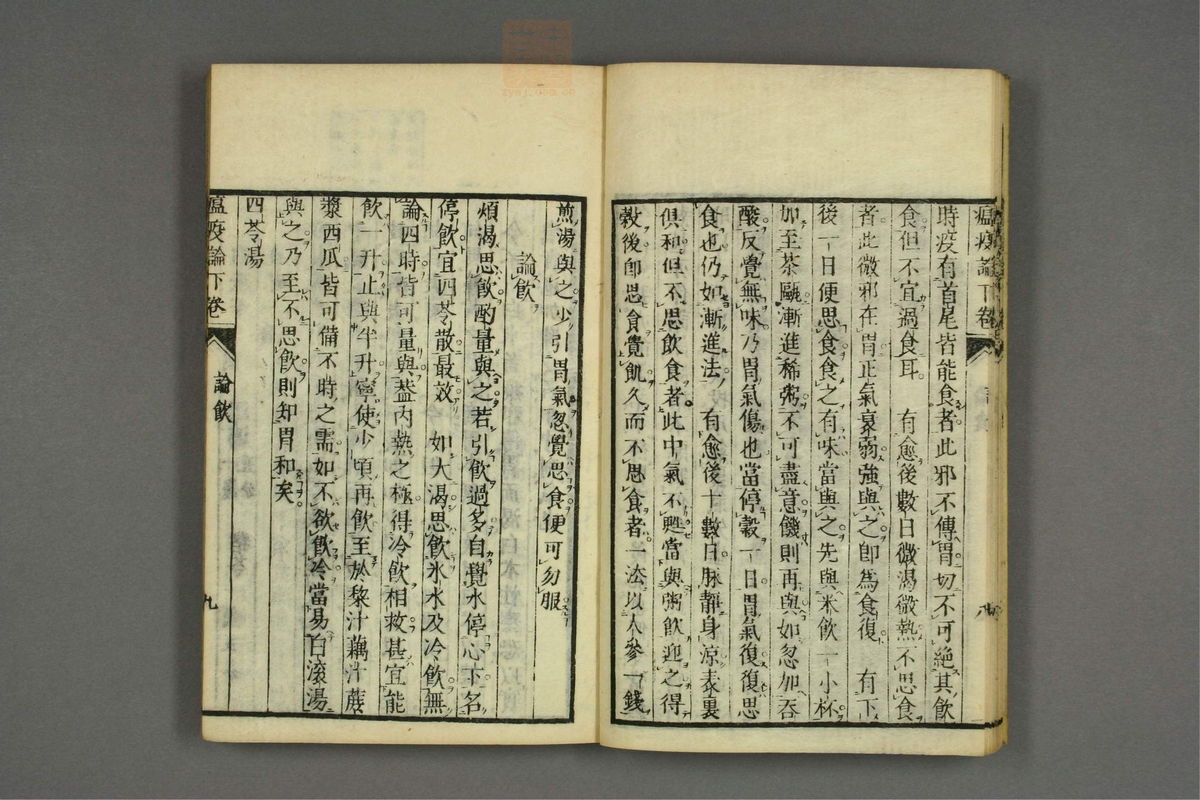 瘟疫論下卷 八
時疫有首尾皆能食者此邪不傳胃切不可絕其飲
食但不宜過食耳 有愈後數日微渴微熱不思食
者此微邪在胃正氣衰弱強與之即為食復 有下
後一日便思食食之有味當與之先與米飲一小杯
加至茶甌漸進稀粥不可盡意饑則再與如忽加吞
酸反覺無味乃胃氣傷也當停穀一日胃氣復復思
食也仍如漸進法 有愈後十數日脉靜身涼表裏
俱和但不思飲食者此中氣不甦當與粥飲迎之得
穀後即思食覺飢久而不思食者一法以人參一錢
煎湯與之少引胃氣忽覺思食便可勿服
論飲
煩渴思飲酌量與之若引飲過多自覺水停心下名
停飲宜四苓散最效 如大渴思飲氷水及冷飲無
論四時皆可量與蓋內熱之極得冷飲相救甚宜能
飲一升止與半升寧使少頃再飲至於黎汁藕汁蔗
漿西瓜皆可備不時之需如不欲飲冷當易白滾湯
與之乃至不思飲則知胃和矣
四苓湯
瘟疫論下卷 論飲 九
zysj.com.cn